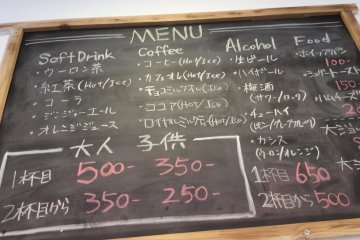 MENU
Soft Drink
・ウーロン茶
・紅茶(Hot/Ice)
・コーラ
・ジンジャーエール
・オレンジジュース
Coffee
・コーヒー(Hot/Ice)
・カフェオレ(Hot/Ice)
・チョコミルクオレ(Hot/Ice)
・ココア(Hot/Ice)
・ロイヤルミルクティ(Hot/Ice)
Alcohol
・生ビール
・ハイボール
・梅酒
(サワー/ロック)
・チューハイ
(レモン/グレープフルーツ)
・カシス
(ウーロン/オレンジ)
1杯目 650
2杯目から 500
Food
・ホイップパン
100
・シュガートースト
150
大人 子供
1杯目 500- 350-
2杯目から 350- 250-